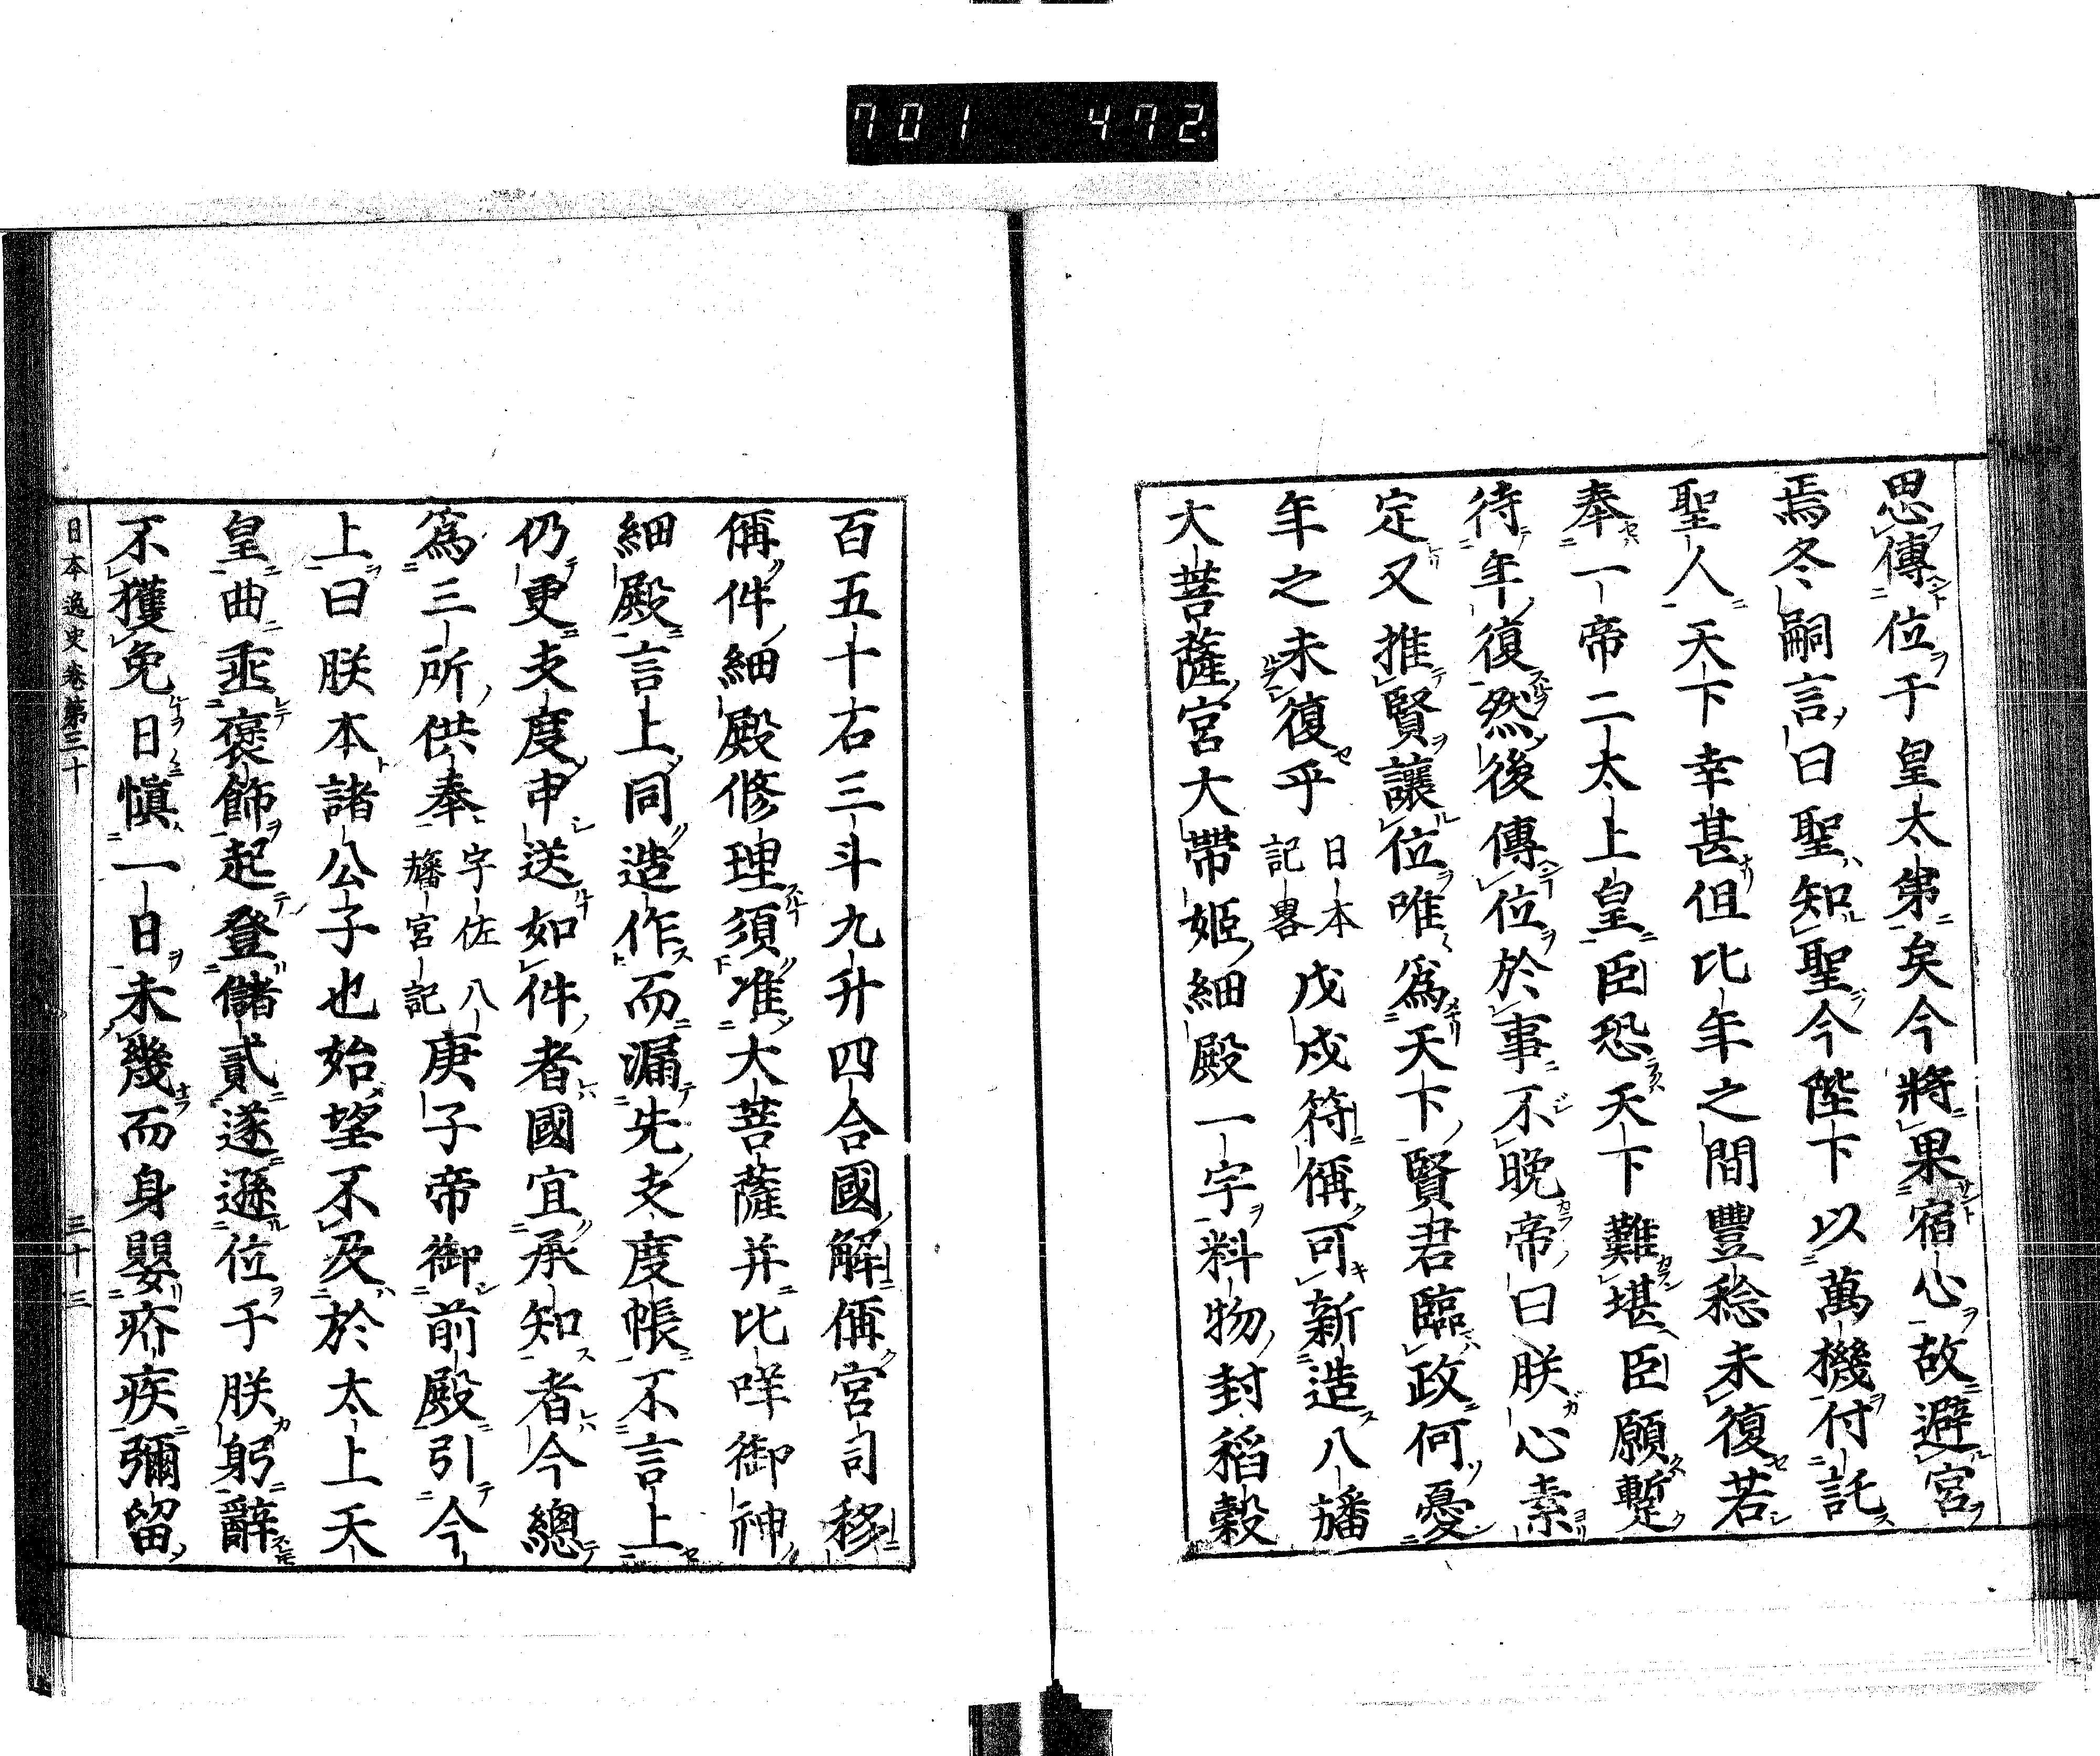 701 472.
思傳位于皇太弟矣今將果宿心故避宮
焉冬嗣言曰聖知聖今陛下以萬機付託
聖人天下幸甚但比年之間豐稔未復若
奉一帝二太上皇臣恐天下難堪臣願蹔
待年復然後傳位於事不晚帝曰朕心素
定又推賢讓位唯爲天下賢君臨政何憂
年之未復乎日本記畧戊戌符偁可新造八旛
大菩薩宮大帶姬細殿一宇料物封稻穀
百五十右三斗九升四合國解偁宮司移
偁件細殿修理須准大菩薩并比咩御神
細殿言上同造作而漏先支度帳不言上
仍更支度申送如件者國宜承知者今總
爲三所供奉宇佐八旛宮記庚子帝御前殿引今
上曰朕本諸公子也始望不及於太上天
皇曲垂褒飾起登儲貳遂遜位于朕躬辭
不獲免日愼一日未幾而身嬰疥疾彌留
日本逸史卷第三十 三十三